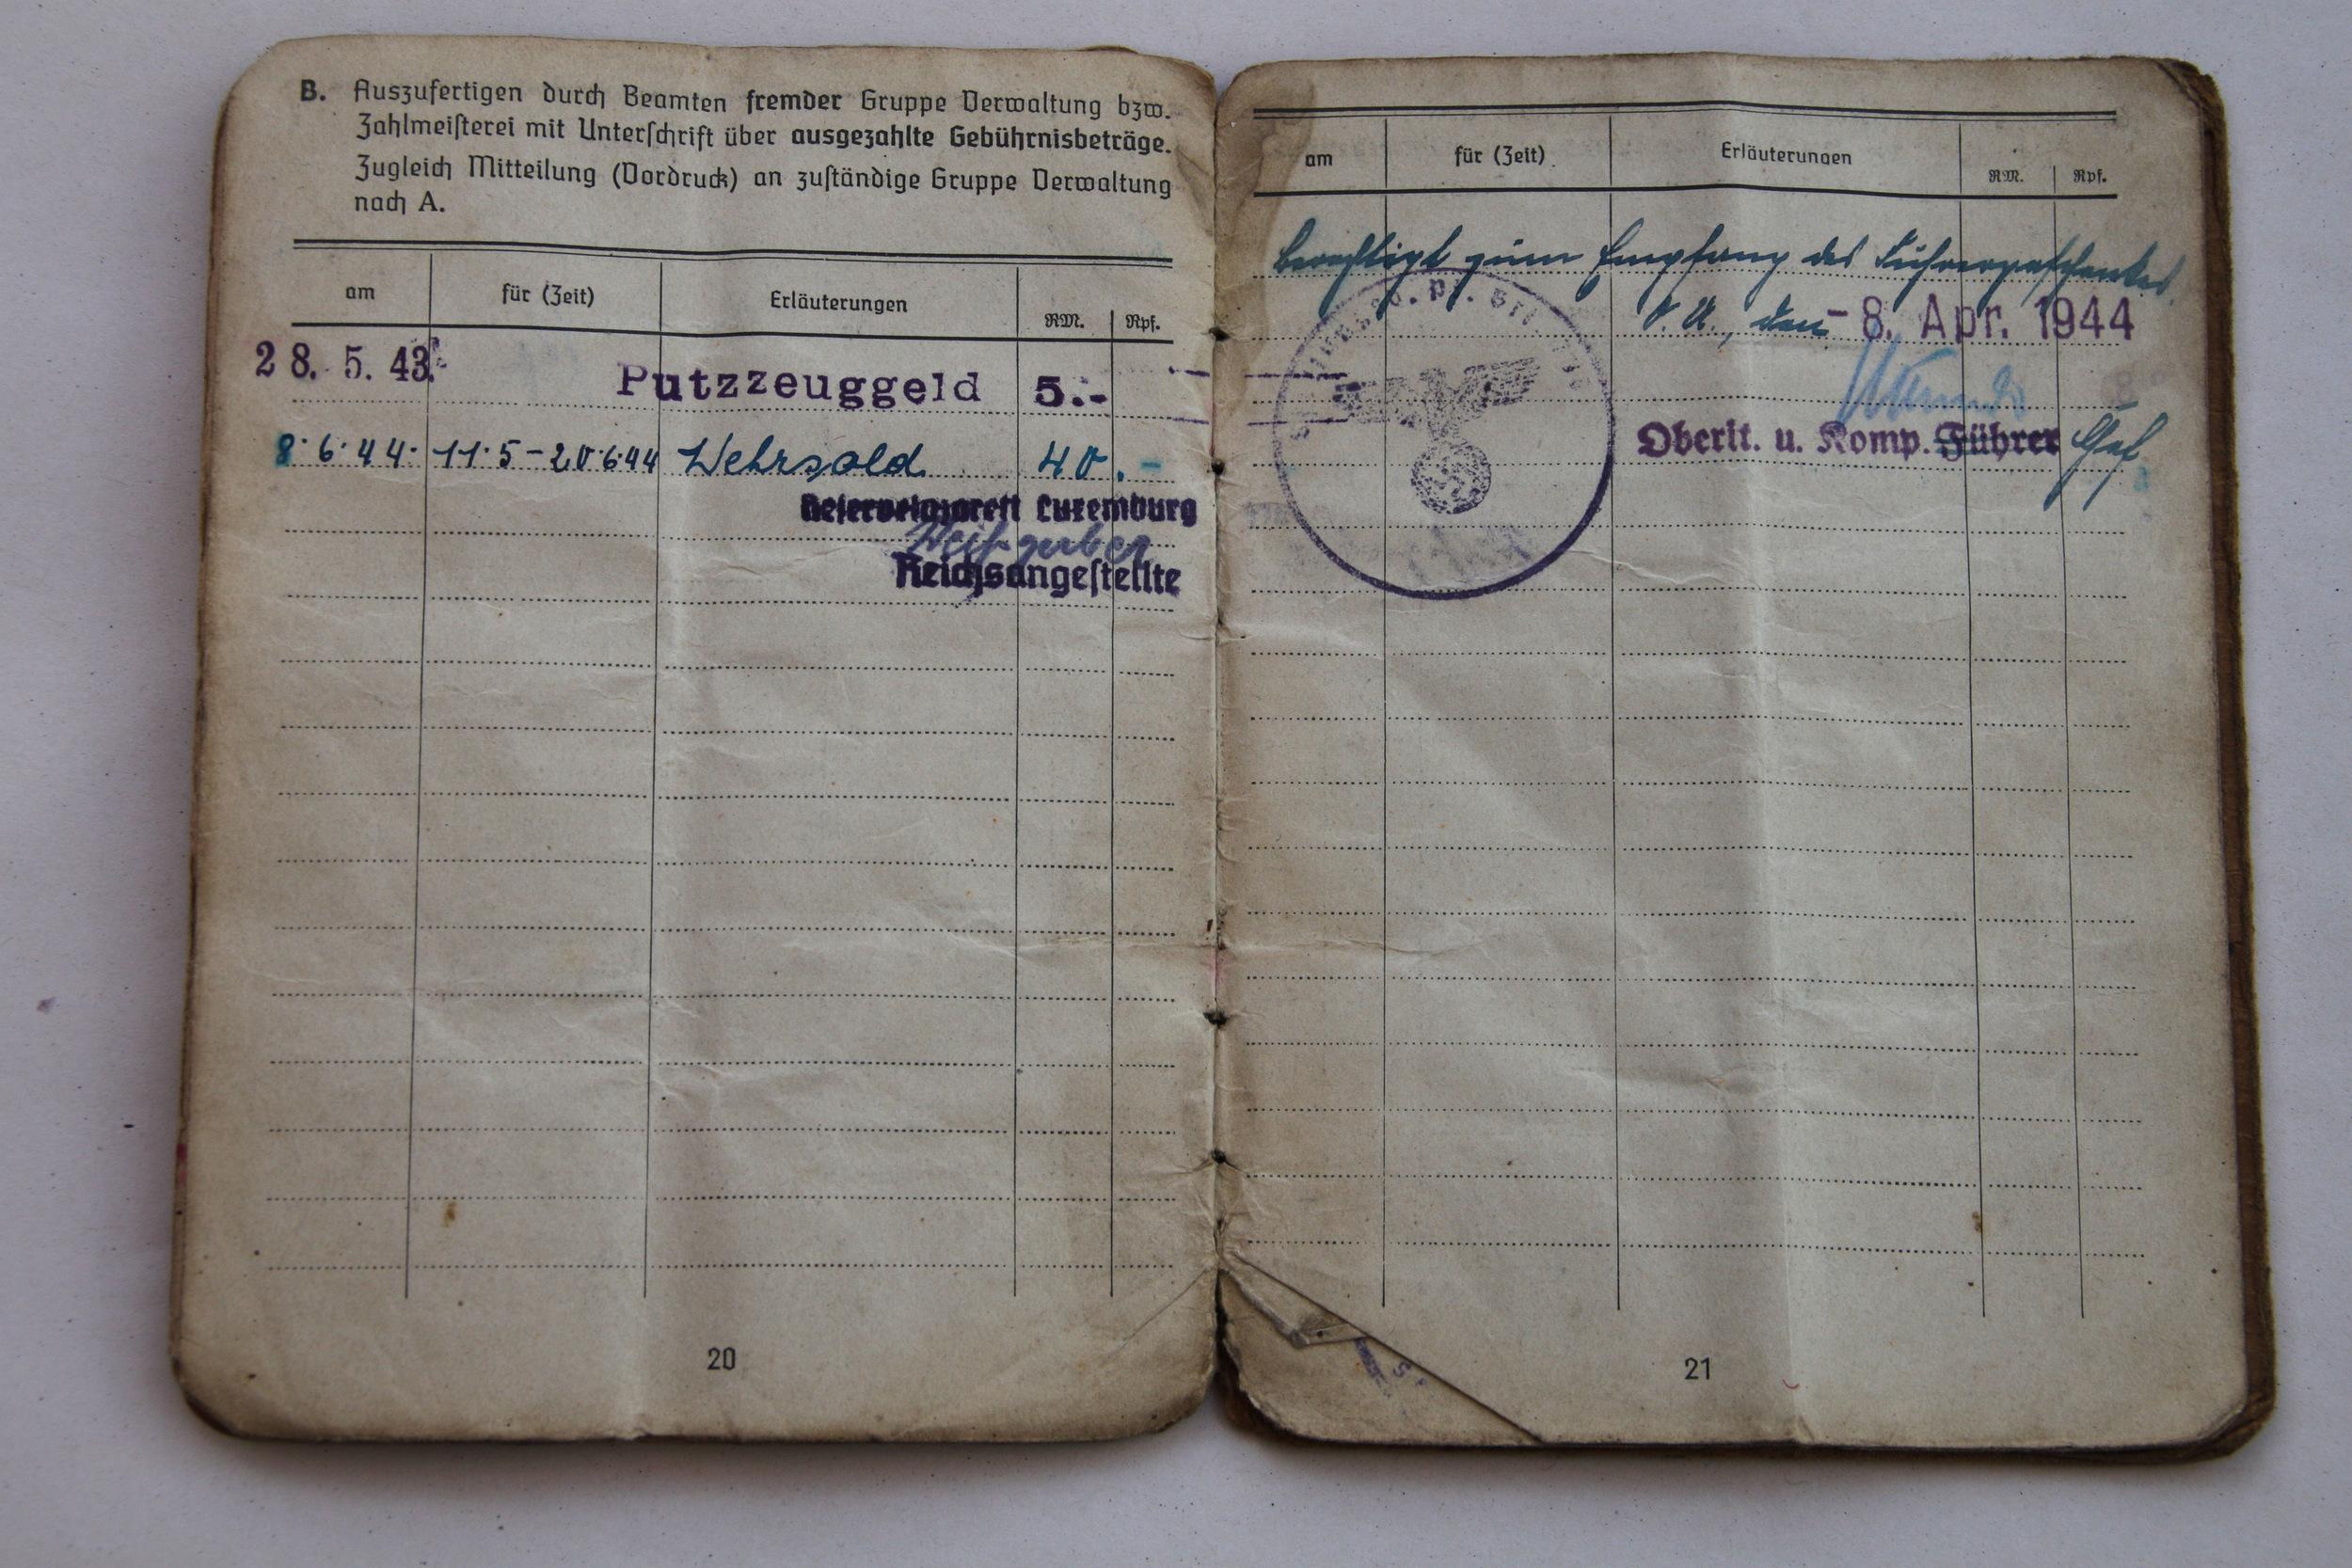 B. Auszufertigen durch Beamten fremder Gruppe Verwaltung bzw.
Zahlmeisterei mit Unterschrift über ausgezahlte Gebührnisbeträge.
Zugleich Mitteilung (Vordruck) an zuständige Gruppe Verwaltung
nach A.
am für (Zeit) Erläuterungen RM. Rpf.
28. 5. 43. Putzzeuggeld 5.-
8.6.44. 11.5-20.6.44 Wehrsold 40.-
Reservelazarett Luxemburg
Reichsangestellte
20
am für (Zeit) Erläuterungen RM. Rpf.
berechtigt zum Empfang des Führergeschenkes
O.U., den -8. Apr. 1944
Oberlt. u. Komp. Führer Chef
21